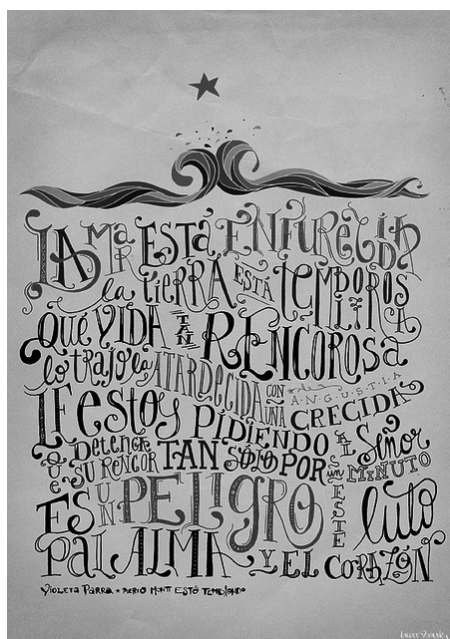 LA MAR ESTÁ ENFURECIDA
la tIERRA ESTÁ TEMBLOROSA
QUÉ VIDA TAN RENCOROSA
lo trajo la ATARDECIDA
CON UNA ANGUSTIA CRECIDA
LE EStoy PIDIENDO AL Señor
QUE DETENGA SU RENCOR TAN SÓLO POR UN MINUTO
ES UN PELIGRO ESTE luto
PAL ALMA Y EL CORAZÓN
Violeta Parra * PUERTO MONTT ESTÁ TEMBLANDO